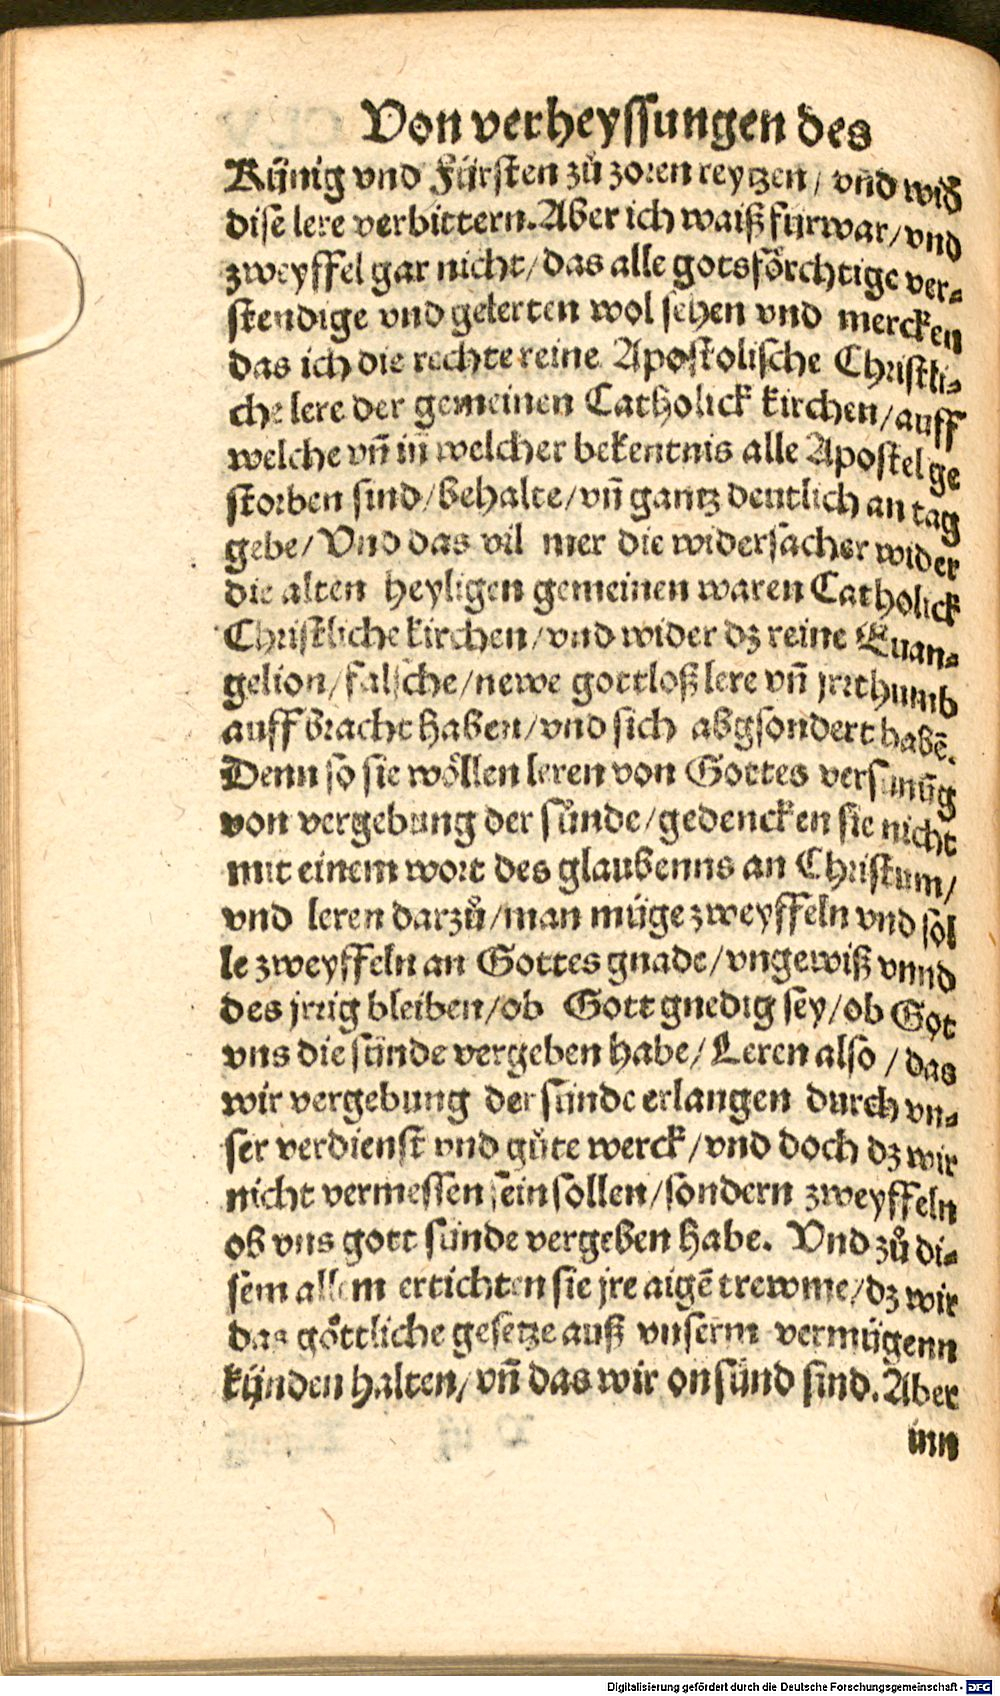 Von verheyssungen des
Künig vnd Fürsten zů zoren reytzen / vnd wid̄
dise lere verbittern. Aber ich waiß fürwar / vnd
zweyffel gar nicht / das alle gotsförchtige ver-
stendige vnd gelerten wol sehen vnd mercken
das ich die rechte reine Apostolische Christli-
che lere der gemeinen Catholick kirchen / auff
welche vn̄ in welcher bekentnis alle Apostel ge
storben sind / behalte / vn̄ gantz deutlich an tag
gebe / Vnd das vil mer die widersacher wider
die alten heyligen gemeinen waren Catholick
Christliche kirchen / vnd wider dz reine Euan-
gelion / falsche / newe gottloß lere vn̄ jrrthumb
auff bracht haben / vnd sich abgsondert habē.
Denn so sie wöllen leren von Gottes versunūg
von vergebung der sünde / gedencken sie nicht
mit einem wort des glaubenns an Christum /
vnd leren darzů / man müge zweyffeln vnd sol
le zweyffeln an Gottes gnade / vngewiß vnnd
des jrrig bleiben / ob Gott gnedig sey / ob Got
vns die sünde vergeben habe / Leren also / das
wir vergebung der sünde erlangen durch vn-
ser verdienst vnd gůte werck / vnd doch dz wir
nicht vermessen sein sollen / sondern zweyffeln
ob vns gott sünde vergeben habe. Vnd zů di-
sem allem ertichten sie jre aigē trewme / dz wir
das göttliche gesetze auß vnserm vermügenn
künden halten / vn̄ das wir on sünd sind. Aber
inn
Digitalisierung gefördert durch die Deutsche Forschungsgemeinschaft - DFG